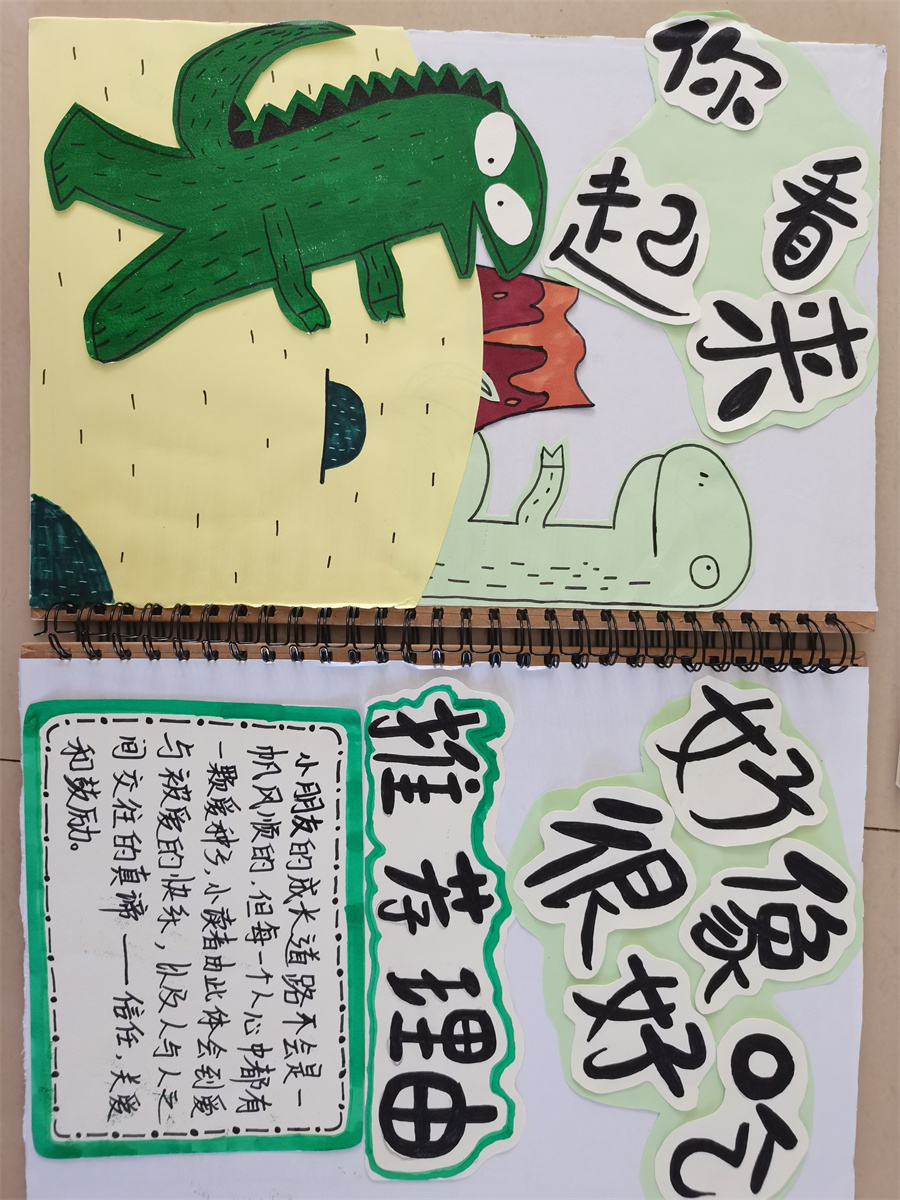 你看起来
好像很好吃
推荐理由
小朋友的成长道路不会是一
帆风顺的,但每一个人心中都有
一颗爱种子,小读者由此体会到爱
与被爱的快乐,以及人与人之
间交往的真谛——信任,关爱
和鼓励。